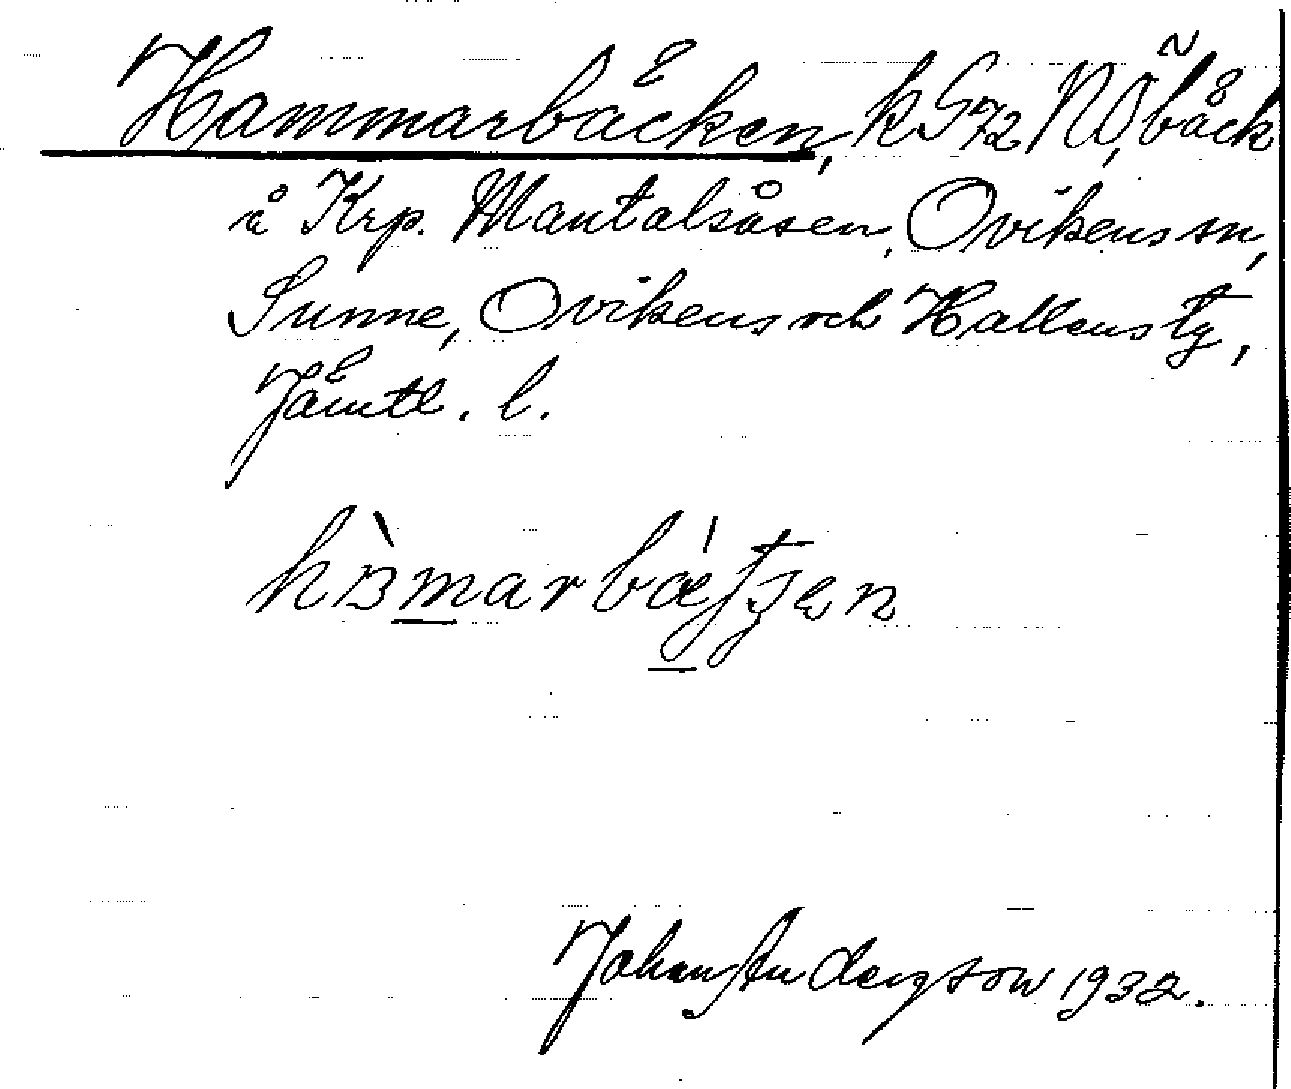 Hammarbäcken, k 572 NÖ, bäck
å Krp. Mantalsåsen, Ovikens sn,
Sunne, Ovikens och Hallens tg,
Jämtl. l.
Johan Anderzson 1932.